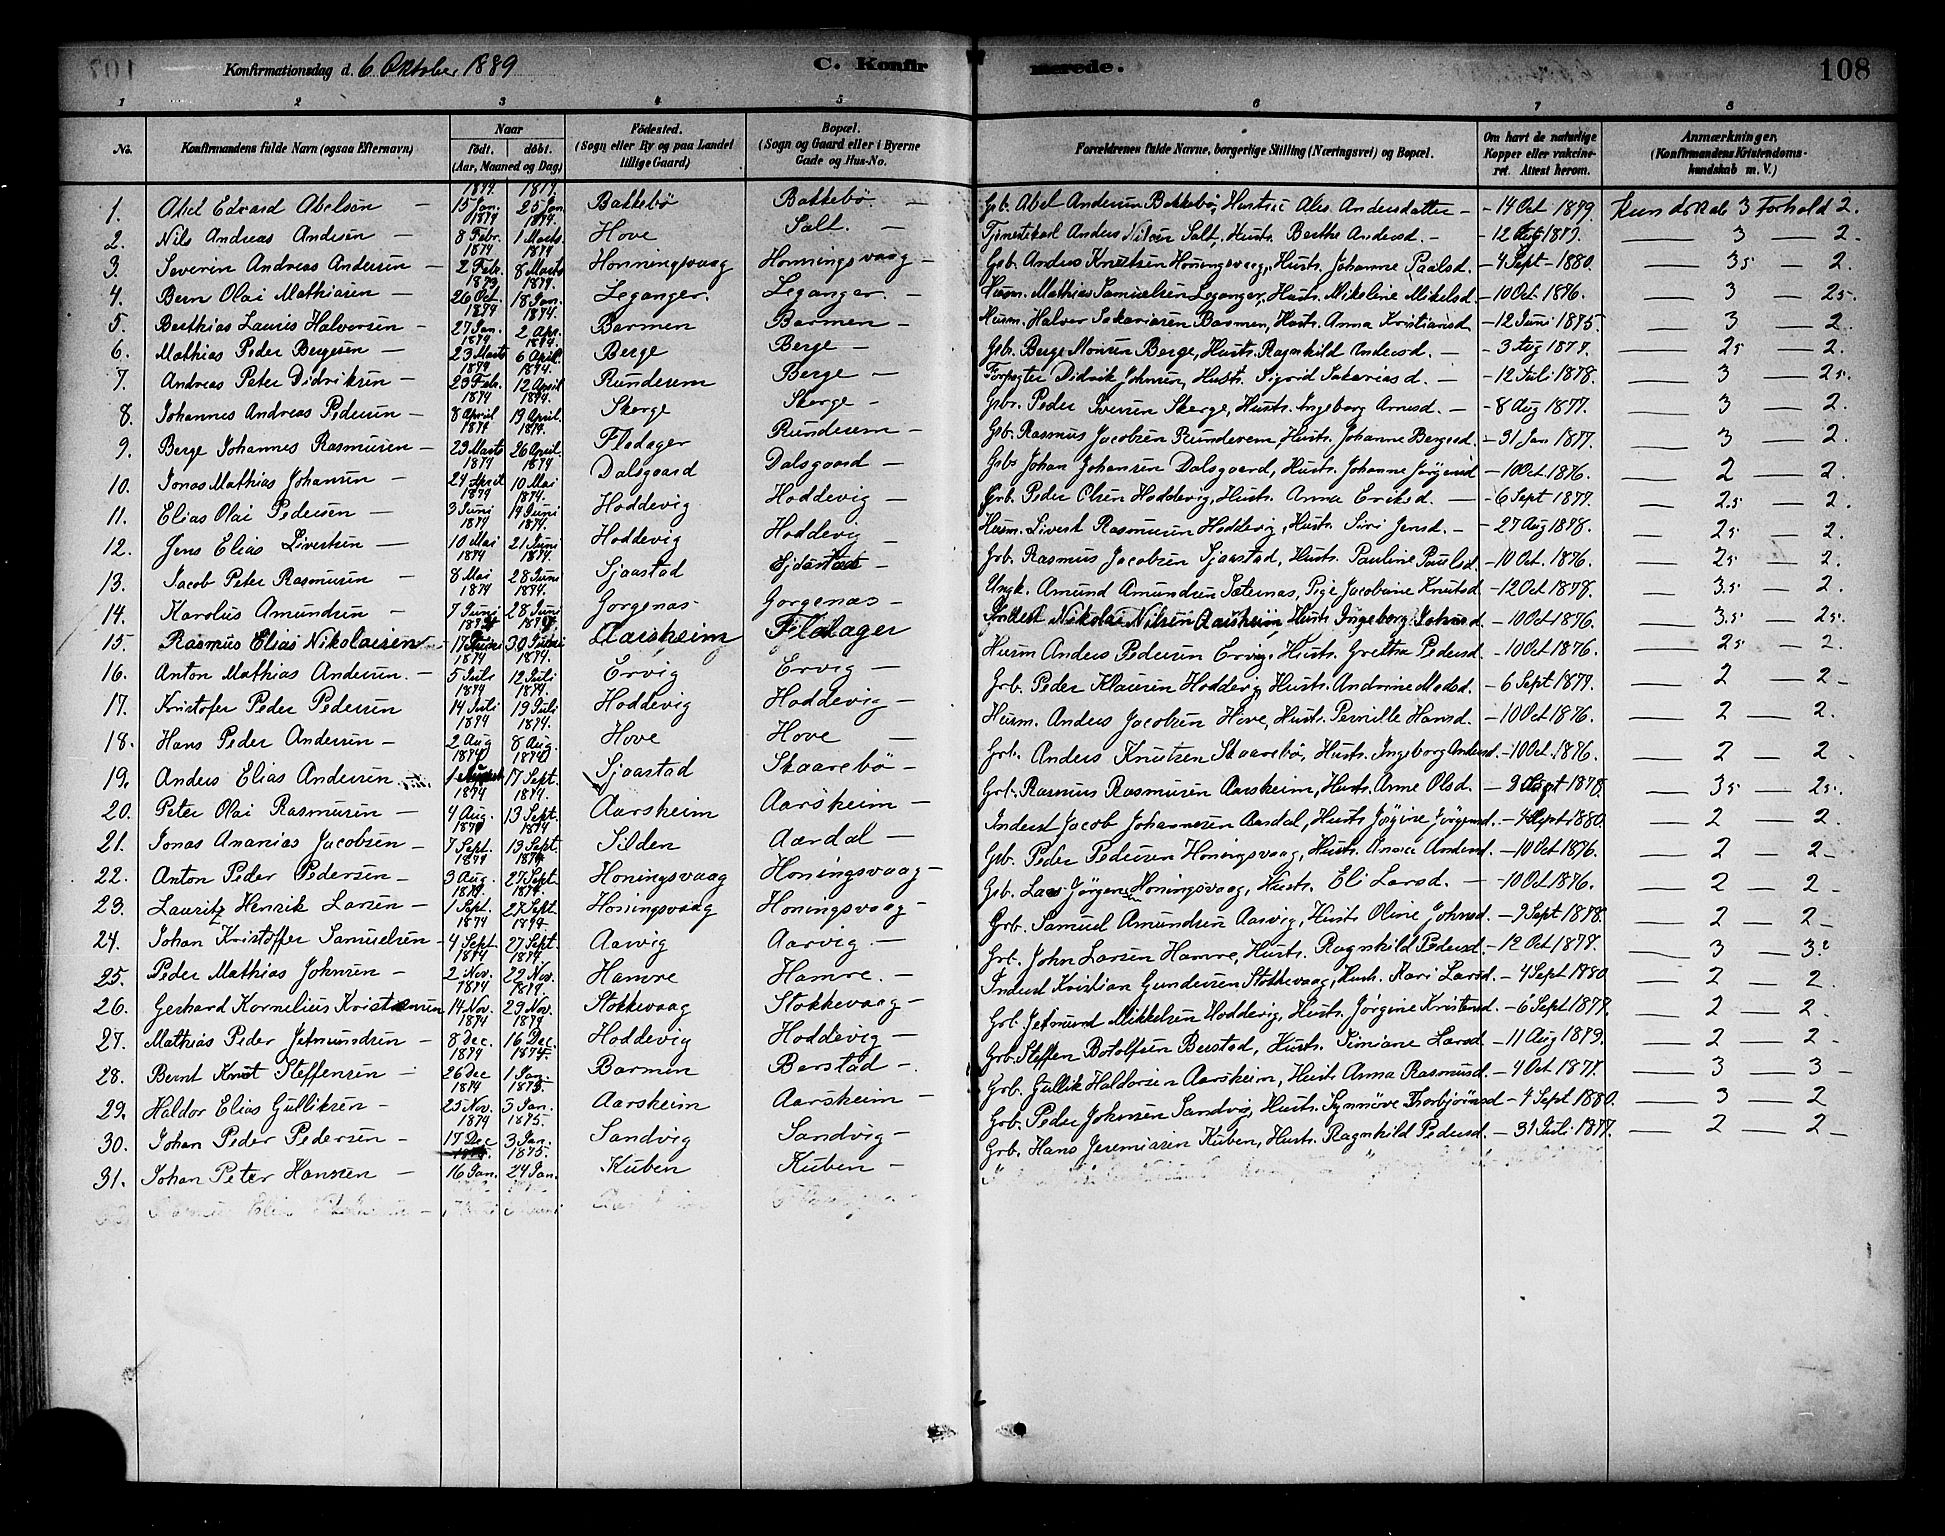 Konfirmationsdag d. 6 Oktober 1889 C. Konfirmerede. 108
1 2 3 4 5 6 7 8
No. Konfirmandens fulde Navn (ogsaa Efternavn) Naar født. døbt. (Aar, Maaned og Dag) Fødested. (Sogn eller By og paa Landet tillige Gaard) Bopæl. (Sogn og Gaard eller i Byerne Gade og Hus-No. Forældrenes fulde Navne, borgerlige Stilling (Næringsvei) og Bopæl. Om havt de naturlige Kopper eller vakcineret. Attest herom. Anmærkninger. (Konfirmandens Kristendomskundskab m. V.)
1. Abel Edvard Abelsen 1874 15 Jan. 1874 25 Jan Bakkebø Bakkebø Gb. Abel Andersen Bakkebø, Hustru Ales Andersdatter 14 Oct 1879 Kundskab 3 Forhold 2.
2. Nils Andreas Andersen 1874 8 Febr. 1874. 1 Marts Hove Salt. Tjenestekarl Anders Nilsen Salt, Husts. Berthe Andersd. 12 Aug 1879. 3 2.
3. Severin Andreas Andersen 1874 2 Febr. 1874 8 Marts Honningsvaag Honningsvaag Gb. Anders Knutsen Honingsvaag, Hust. Johanne Paalsd. 4 Sept 1880. 35 2.
4. Bern Olai Mathiasen 1873 26 Oct. 1874. 18 Jan. Leganger. Leganger. Husm. Mathias Samuelsen Leganger, Hust. Mikeline Mikelsd 10 Oct 1876. 3 25.
5. Berthias Lauris Halversen 1874 27 Jan. 1874. 2 Apr. Barmen Barmen Husm. Halver Sakariasen Barmen, Hust. Anna Kristiansd 12 Juni 1875. 3 2.
6. Mathias Peder Bergesen 1874 23 Marts 1874. 6 April. Berge Berge Gb. Berge Monsen Berge, Hust. Ragnhild Andersd. 3 Aug 1877. 25 2.
7. Andreas Peter Didriksen 1874 23 Feb. 1874. 12 April Runderem Berge Forpagter Didrik Johnsen, Hust. Sigrid Sakariasd. 12 Juli 1878. 3 25.
8. Johannes Andreas Pedersen 1874 8 April 1874 19 April. Skerge Skerge Gbr. Peder Iversen Skerge, Hust. Ingeborg Arnesd. 8 Aug 1877. 3 2.
9. Berge Johannes Rasmusen 1874 23 Marts 1874. 26 April. Flodager Runderem Gb. Rasmus Jacobsen Runderem Hust. Johanne Bergesd. 31 Jan 1877. 3 2.
10. Jonas Mathias Johansen 1874 24 April 1874 10 Mai Dalsgaard Dalsgaard Gbs Johan Johansen Dalsgaard, Hust. Johanne Jørgensd 10 Oct. 1876. 2 2.
11. Elias Olai Pedersen 1874 3 Juni 1874. 14 Juni Hoddevig Hoddevig Grb. Peder Olsen Hoddevig, Hust. Anna Eriksd. 6 Sept 1877. 25 2.
12. Jens Elias Sivertsen 1874 10 Mai 1874. 21 Juni Hoddevig Hoddevig Husm. Sivert Rasmusen Hoddevig, Hust. Siri Jensd. 27 Aug 1878. 25 2.
13. Jacob Peter Rasmusen 1874 8 Mai 1874. 28 Juni Sjaastad Sjaastad Grb. Rasmus Jacobsen Sjaastad, Hust. Pauline Paulsd. 10 Oct. 1876. 25 2.
14. Karolus Amundsen 1874 7 Juni 1874. 28 Juni Gorgenæs Gorgenæs Ungk. Amund Amundsen Sæternæs, Pige Jacobine Knutsd 12 Oct 1878. 35 2.
15. Rasmus Elias Nikolaisen 17 Juni 30 Aarsheim Fldager Inderst Nikolai Nilsen Aarsheim Hust. Ingeborg Johnsd. 10 Oct 1876. 35 25.
16. Anton Mathias Andersen. 1874 5 Juli 1874. 12 Juli Ervig Ervig Husm Anders Pedersen Ervig, Hust. Gretha Pedersd. 10 Oct 1876. 25 2.
17. Kristofer Peder Pedersen 1874 14 Juli 1874. 19 Juli Hoddevig Hoddevig Grb. Peder Klausen Hoddevig, Hust. Andrine Madsd. 6 Sept 1877. 2 2
18. Hans Peder Andersen 1874 2 Aug 1874 8 Aug. Hove Hove Husm. Anders Jacobsen Hove, Hust. Pernille Hansd. 10 Oct 1876. 2 2.
19. Anders Elias Andersen 1874 1 1874 17 Sept. Sjaastad Skaarebø Grb. Anders Knutsen Skaarebø, Hust. Ingeborg Andersd. 10 Oct. 1876. 2 2
20. Peter Olai Rasmusen 1874 4 Aug. 1874. 13 Sept. Aarsheim Aarsheim Grb. Rasmus Rasmusen Aarsheim, Hust. Anne Olsd. 1878. 35 25.
21. Jonas Ananias Jacobsen 1874 7 Sept. 1874 13 Sept. Silden Aardal Inderst Jacob Johannesen Aardal, Hust. Jørgine Jørgensd. 4 Sept 1880. 2 2.
22. Anton Peder Pedersen 1874 3 Aug. 1874. 27 Sept Honingsvaag Honingsvaag Gb. Peder Pedersen Honingsvaag, Hust. Anne Andersd. 10 Oct 1876. 2 2
23. Lauritz Henrik Larsen 1874 1 Sept. 1874. 27 Sept Honingsvaag Honingsvaag Gb. Lars Jørgensen Honingsvaag, Hust. Eli Larsd. 10 Oct 1876. 2 2
24. Johan Kristoffer Samuelsen 1874 4 Sept 1874 27 Sept. Aarvig Aarvig. Grb. Samuel Amundsen Aarvig, Hust. Oline Johnsd. 9 Sept 1878. 2 2
25. Peder Mathias Johnsen 1874 2 Nov. 1874. 22 Nov. Hamre Hamre. Grb. John Larsen Hamre, Hust. Ragnhild Pedersd. 12 Oct 1877. 3 3
26. Gerhard Kornelius Kristensen 1874 14 Nov. 1874 29 Nov. Stokkevaag Stokkevaag Inderst Kristian Gundersen Stokkevaag, Hust. Kari Larsd. 4 Sept 1880. 2 2.
27. Mathias Peder Jetmundsen 1874 8 Dec. 1874 16 Dec. Hoddevig Hoddevig Grb. Jetmund Mikkelsen Hoddevig, Hust. Jørgine Kristensd 6 Sept 1877. 2 2.
28. Bernt Knut Steffensen 1874 26 Dec 1875. 1 Jan. Barmen Berstad Grb. Steffen Botolfsen Berstad, Hust. Simiane Larsd. 11 Aug 1879. 2 2
29. Haldor Elias Gulliksen 1874 25 Nov. 1875. 3 Jan. Aarsheim Aarsheim Grb. Gullik Haldorsen Aarsheim, Hust. Anna Rasmusd. 4 Oct 1877. 3 3
30. Johan Peder Pedersen 1874 17 Dec 1875. 3 Jan. Sandvig Sandvig Grb. Peder Johnsen Sandvig, Hust. Synnøve Thorbjørnsd 4 Sept 1880. 3 2
31. Johan Peter Hansen 16 Jan. 24 Jan. Kuben Kuben Grb. Hans Jeremiasen Kuben, Hust. Ragnhild Pedersd. 31 Juli 1877. 2 2